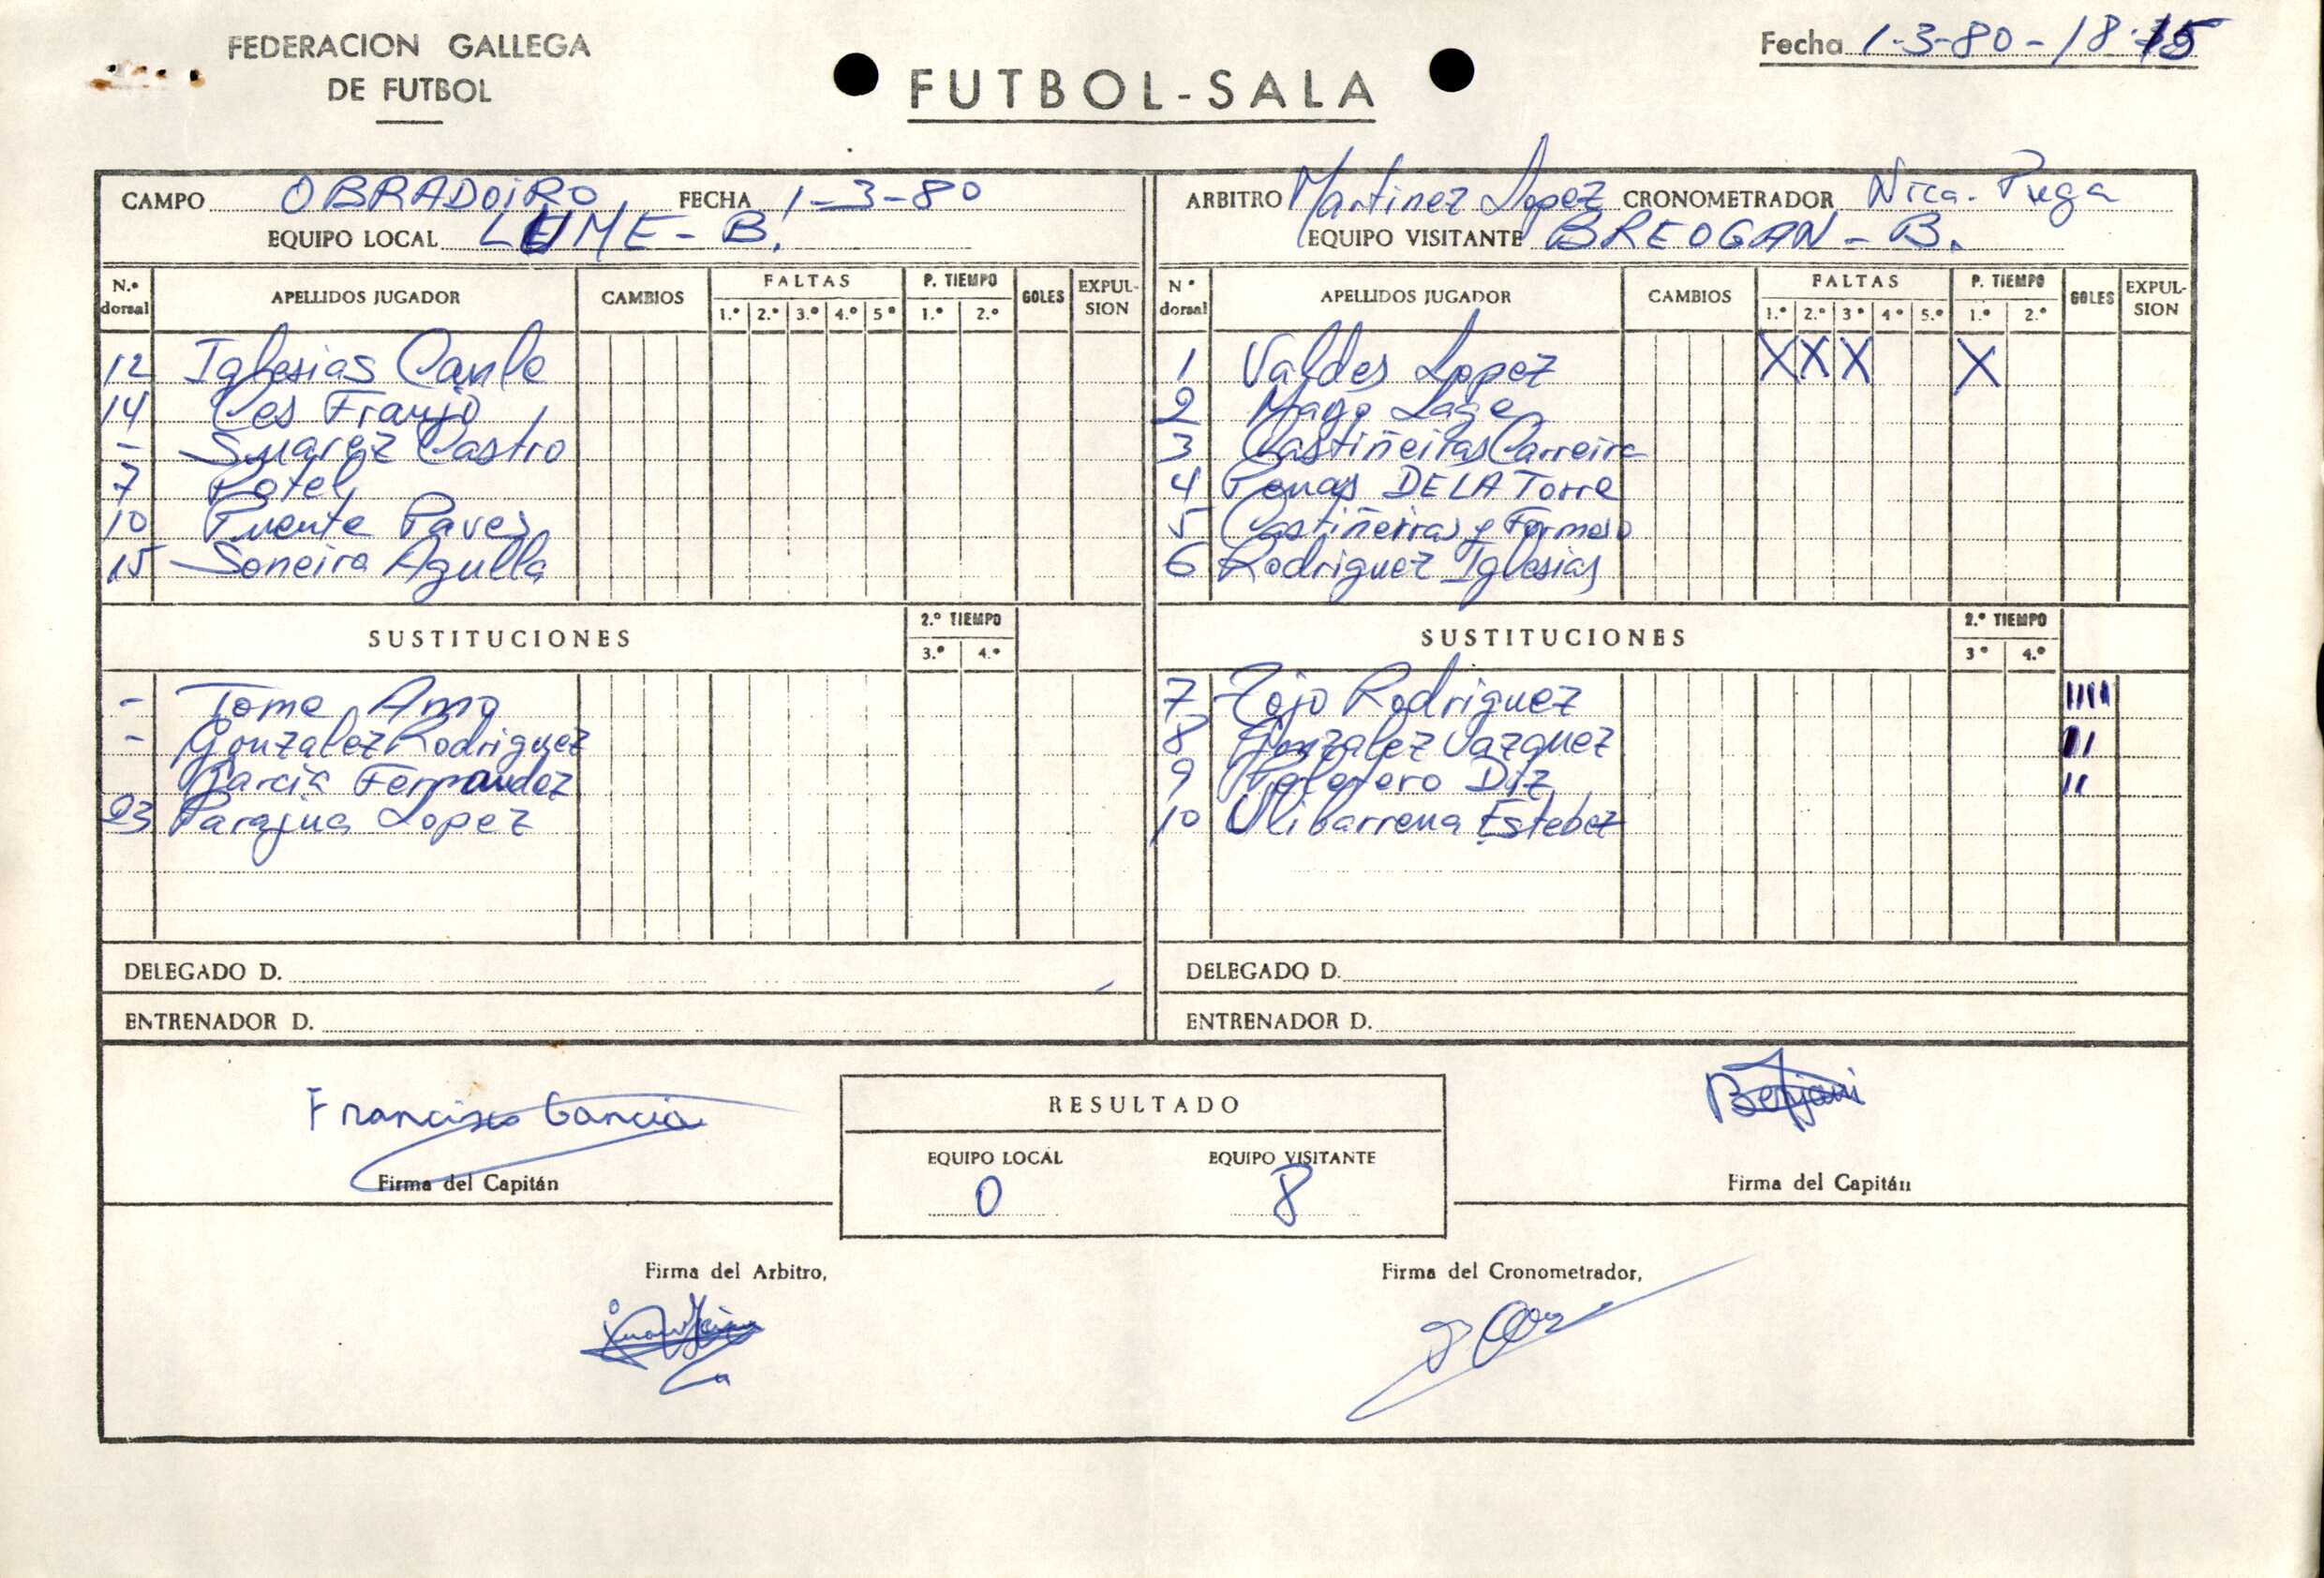 FEDERACION GALLEGA
DE FUTBOL
FUTBOL-SALA
Fecha 1-3-80 - 18.15
CAMPO OBRADOIRO FECHA 1-3-80
EQUIPO LOCAL LUME-B.
N.º dorsal APELLIDOS JUGADOR CAMBIOS FALTAS P. TIEMPO GOLES EXPULSION
1.º 2.º 3.º 4.º 5º 1.º 2.º
12 Iglesias Canle
14 Ces Franjo
- Suarez Castro
7 Potel
10 Puente Paves
15 Soneira Agulla
SUSTITUCIONES 2.º TIEMPO
3.º 4.º
- Tome Amo
- Gonzalez Rodriguez
Garcia Fernandez
23 Parajua Lopez
DELEGADO D.
ENTRENADOR D.
ARBITRO Martinez Lopez CRONOMETRADOR Nica. Puga
EQUIPO VISITANTE BREOGAN-B.
Nº dorsal APELLIDOS JUGADOR CAMBIOS FALTAS P. TIEMPO GOLES EXPULSION
1.º 2.º 3º 4º 5.º 1.º 2.º
1 Valdes Lopez X X X X
2 Mayo Lage
3 Castiñeiras Carreira
4 Penas DE LA Torre
5 Castiñeiras Formoso
6 Rodriguez Iglesias
SUSTITUCIONES 2.º TIEMPO
3º 4.º
7 Tojo Rodriguez IIII
8 Gonzalez Vazquez II
9 Diz II
10 Ulibarrena Estebez
DELEGADO D.
ENTRENADOR D.
Francisco Garcia
Firma del Capitán
RESULTADO
EQUIPO LOCAL EQUIPO VISITANTE
0 8
Benjani
Firma del Capitán
Firma del Arbitro,
Firma del Cronometrador,